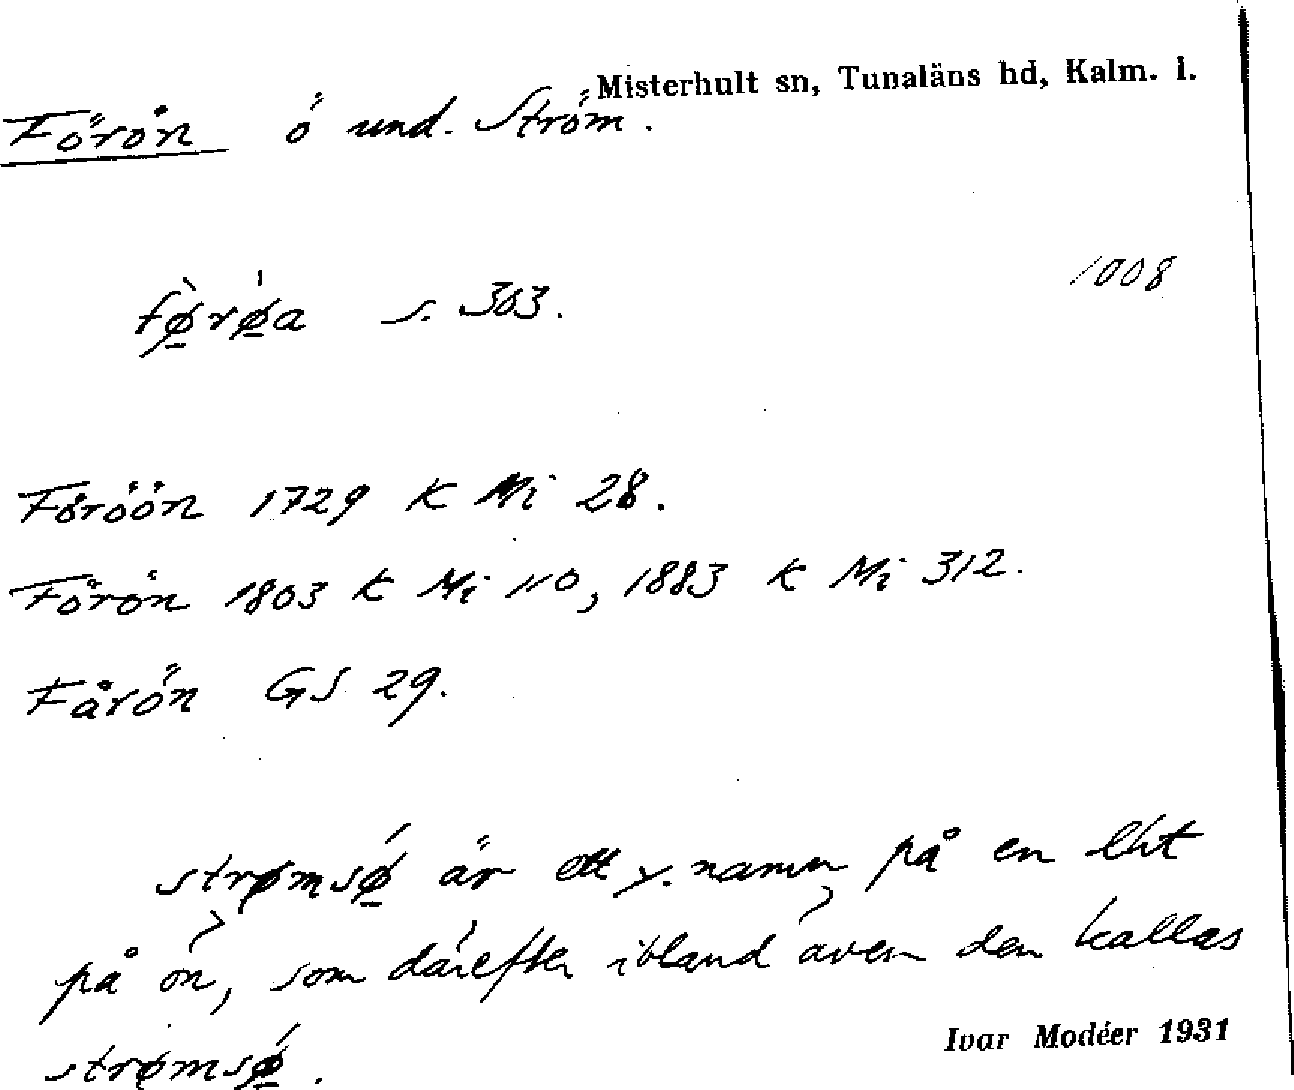 Misterhult sn, Tunaläns hd, Kalm. l.
Förön ö und. Ström.
1008
fø̱̀rǿ̱a s. 303.
Föröön 1729 K Mi 28.
Förön 1803 K Mi 110, 1883 K Mi 312.
Fårön GS 29.
strømsǿ̱ är ett y. namn på en lht
på ön, som därefter ibland även den kallas
strømsǿ̱.
Ivar Modéer 1931